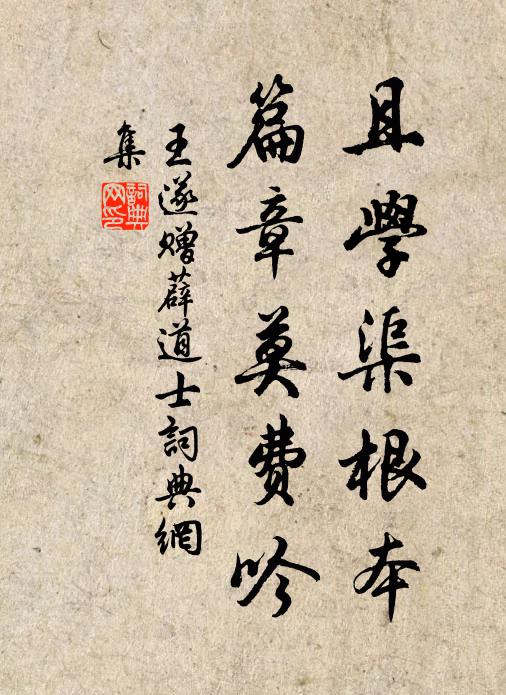 且學渠根本
篇章莫費吟
王遂贈薛道士詞典網
集
詞典網印